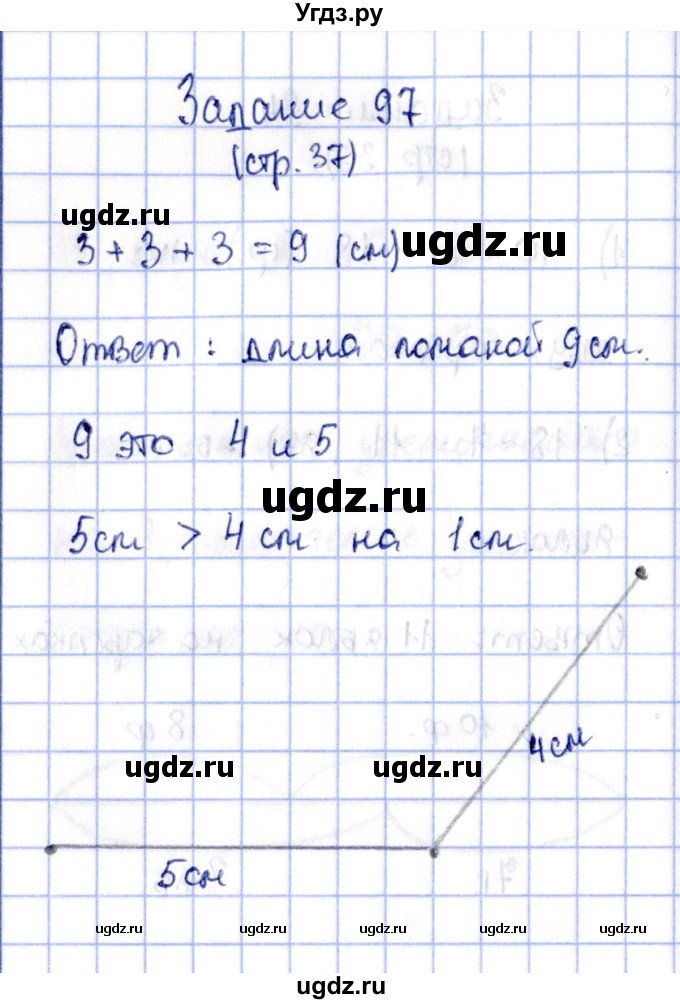 Угдз.ру
Задание 97
(стр. 37)
ugdz.ru
3 + 3 + 3 = 9 (см) ugdz.ru
Ответ : длина ломаной 9 см.
9 это 4 и 5
ugdz.ru
5 см > 4 см на 1 см.
4 см
ugdz.ru ugdz.ru
5 см
ugdz.ru ugdz.ru ugdz.ru ugdz.ru
ugdz.ru